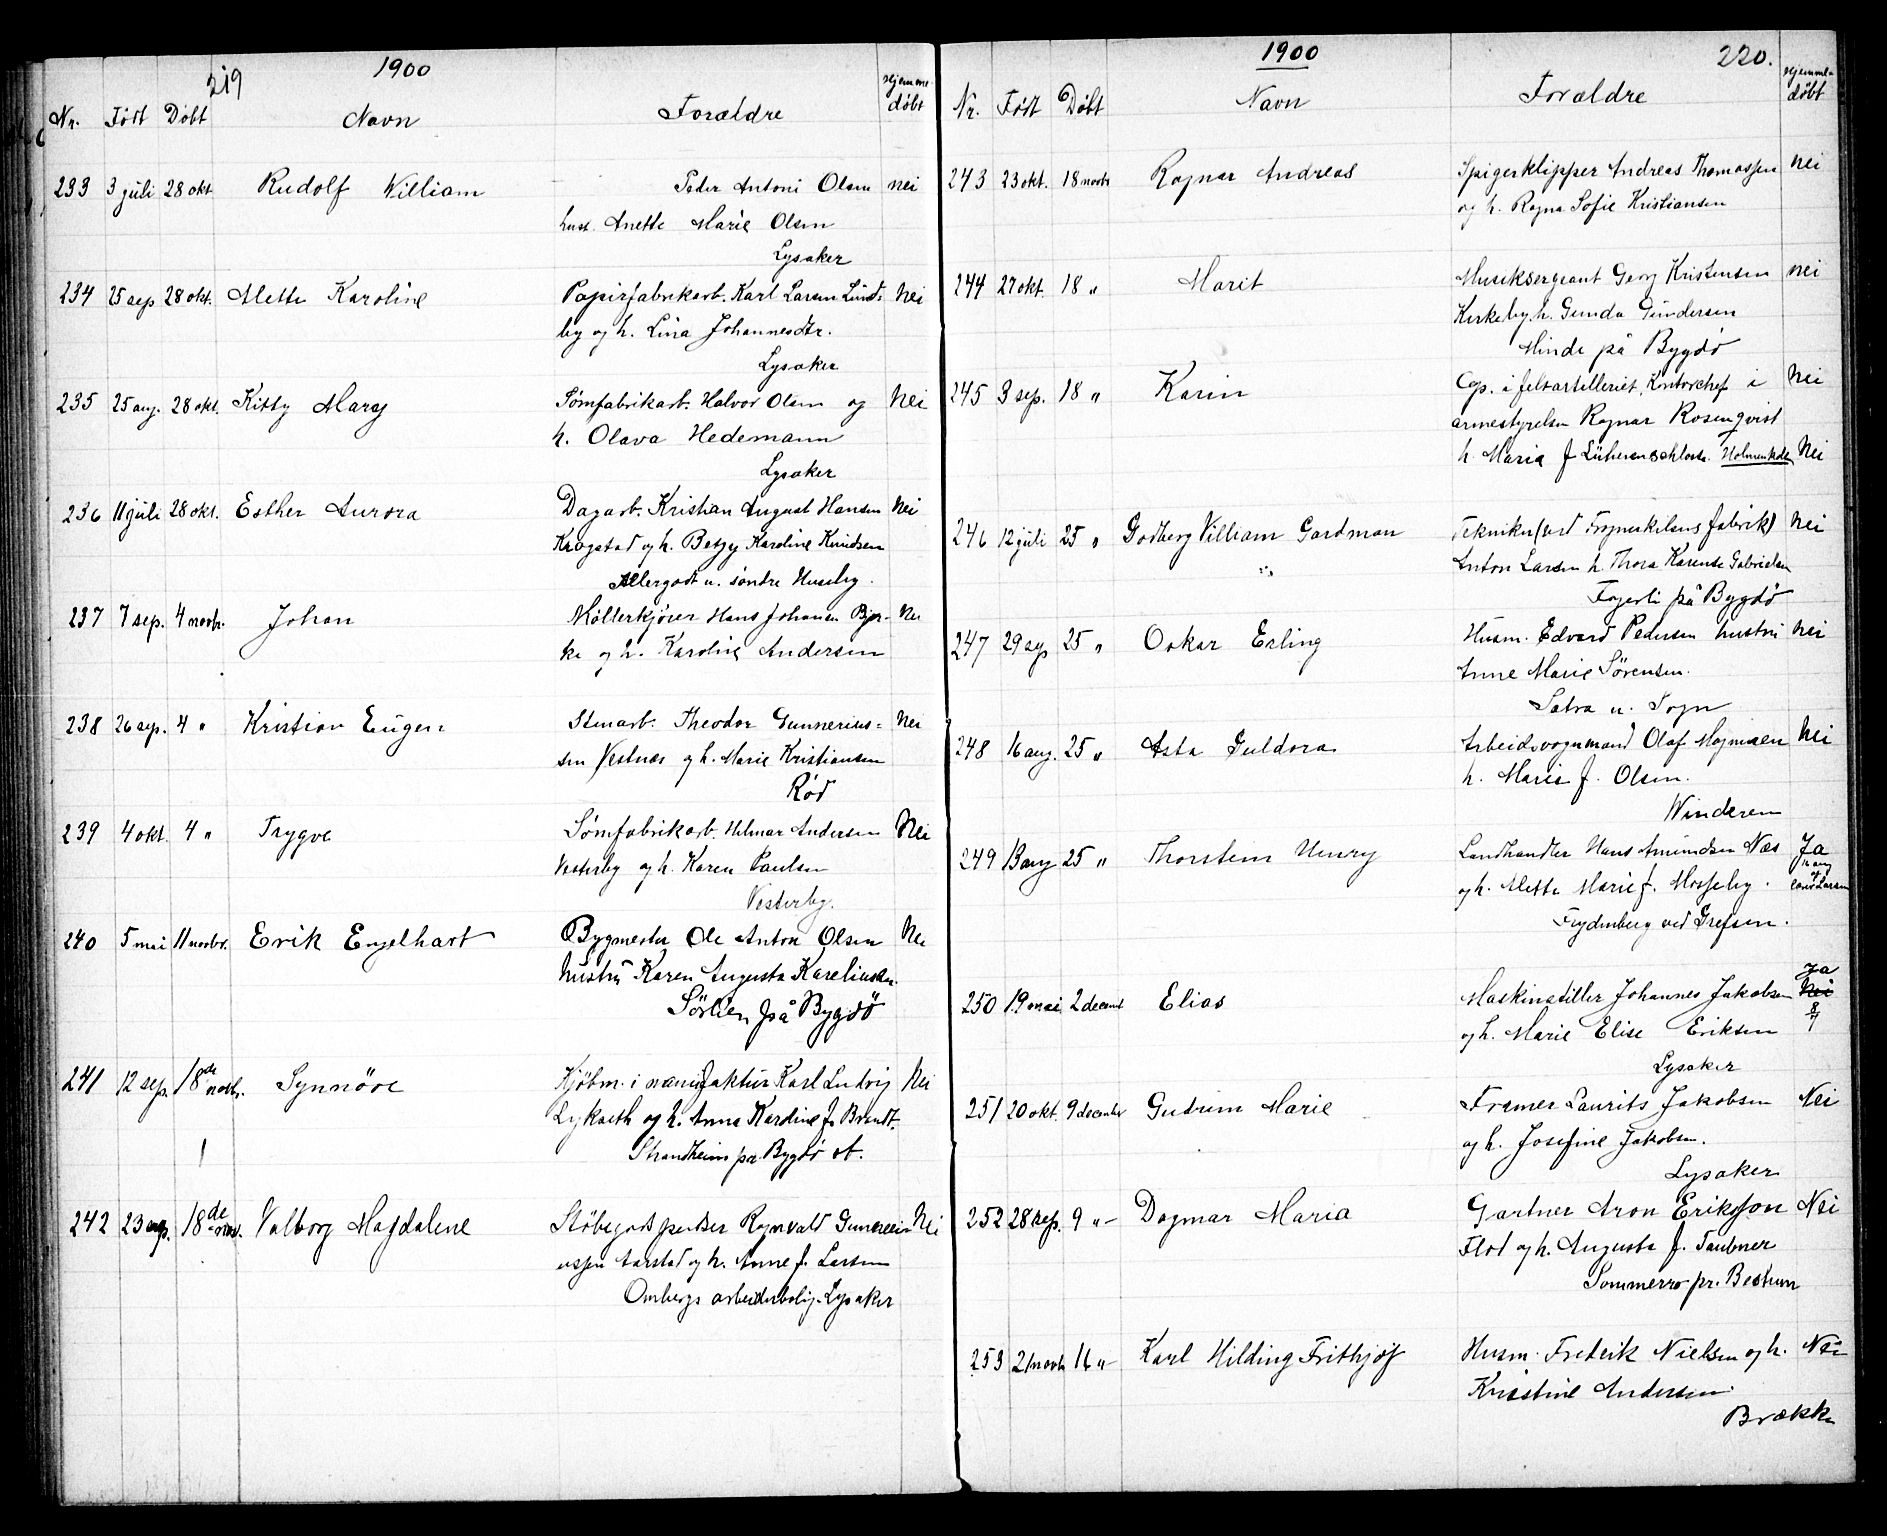 219
1900
Nr. Født Døbt Navn Forældre Hjemme-
døbt
233 3 juli 28 okt Rudolf William Peder Antoni Olsen nei
hust. Anette Marie Olsen
Lysaker
234 25 sep 28 okt. Mette Karoline Papirfabrikarb. Karl Larsen Lind- Nei
by og h. Lina Johannesdtr.
Lysaker
235 25 aug. 28 okt. Kitty Mary Sømfabrikarb. Halvor Olsen og Nei
h. Olava Hedemann
Lysaker
236 11 juli 28 okt. Esther Aurora Dagarb. Kristian August Hansen Nei
Krogstad og h. Betzy Karoline Knudsen
u. søndre Huseby.
237 7 sep. 4 novbr. Johan Møllerkjører Hans Johansen Bjer- Nei
ke og h. Karoline Andersen
238 26 sep. 4 " Kristian Eugen Stenarb. Theodor Gunnerius- Nei
sen Vestnæs og h. Marie Kristiansen
Rød
239 4 okt. 4 " Trygve Sømfabrikarb. Hilmar Andersen Nei
Vesterby og h. Karen Paulsen
Vesterby.
240 5 mei 11 novbr. Erik Engelhart Bygmester Ole Anton Olsen Nei
hustru Karen Augusta Kareliusen.
Sörlien på Bygdö
241 12 sep. 18de novb. Synnöve Kjöbm. i manufaktur Karl Ludvig Nei
og h. Anna Karoline f. Brandt.
Strandheim pr. Bygdö st.
242 23 aug. 18de nov. Valborg Magdalene Støbegodspudser Ragnvald Gunneri- Nei
ussen Aarstad og h. Anne f. Larsen
Ombergs arbeiderbolig. Lysaker
1900
220.
Nr. Født Døbt Navn Forældre Hjemme-
døbt
243 23 okt. 18 novbr Ragnar Andreas Spigerklipper Andreas Thomassen Nei
og h. Ragna Sofie Kristiansen
244 27 okt. 18 " Marit Musiksergeant Georg Kristensen Nei
Kirkeby h. Gunda Gundersen
Minde på Bygdö
245 3 sep. 18 " Karin Cap. i feltartilleriet, Kontorchef i Nei
armestyrelsen Ragnar Rosenqvist
h. Maria f Holmenkolen Nei
246 12 juli 25 " Godberg Villiam Gardman Tekniker (ved Frognerkilens fabrik) Nei
Anton Larsen h. Thora Karense Gabrielsen
på Bygdö
247 29 sep 25 " Oskar Erling Husm. Edvard Pedersen hustru Nei
Anne Marie Sörensen.
u. Sogn
248 16 aug. 25 " Asta Guldora Arbeidsvognmand Olaf Mogensen Nei
h. Marie f. Olsen.
Winderen
249 13 aug 25 " Thorstein Henry Landhandler Hans Amundsen Næs Ja
og h. Mette Marie f. Mosseby.
Frydenberg ved Grefsen.
250 19 mai 2 decemb Elias Maskinstiller Johannes Jakobsen Ja Nei
og h. Marie Elise Eriksen
Lysaker
251 20 okt. 9 decemb Gudrun Marie Former Laurits Jakobsen Nei
og h. Josefine Jakobsen.
Lysaker
252 28 sep. 9 " Dagmar Maria Gartner Aron Eriksson Nei
Flod og h. Augusta f. Taubner
Sommerro pr. Bestum
253 21 novb 16 " Karl Hilding Frithjof Husm. Fredrik Nielsen og h. Nei
Kristine Andersen.
Brække